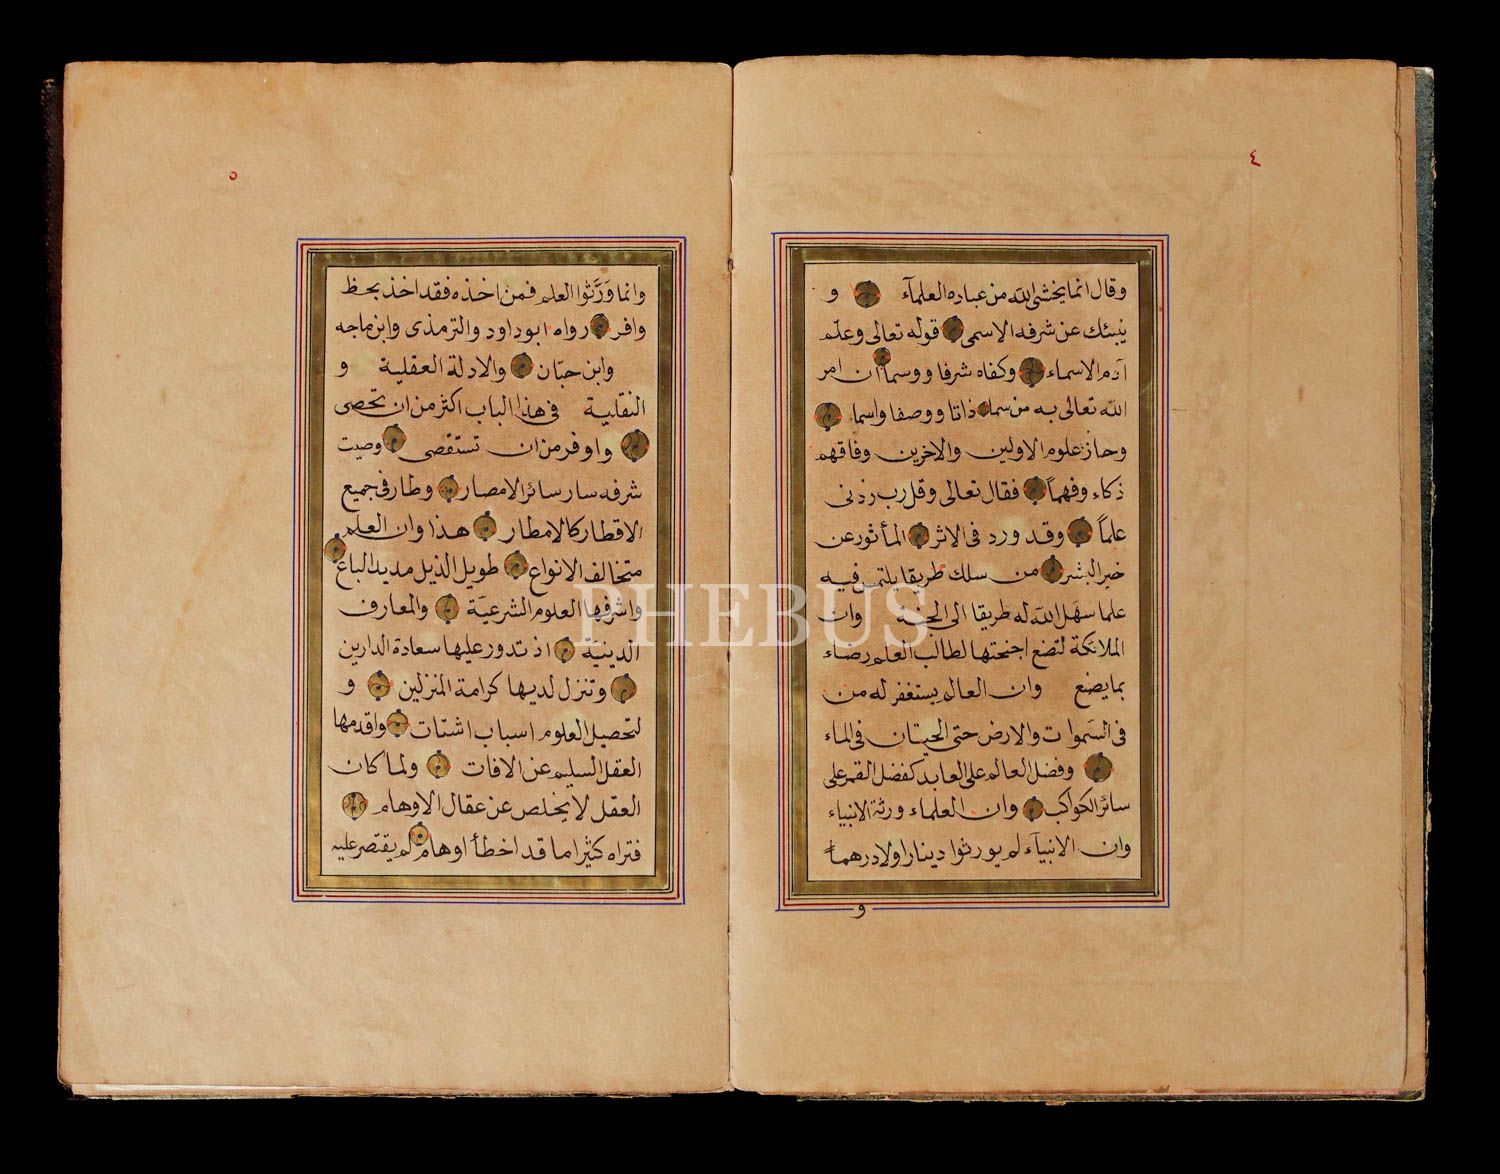 ٤
وقال انما يخشى الله من عباده العلمآء و
ينبئك عن شرفه الاسمى قوله تعالى وعلّم
آدم الاسماء وكفاه شرفا ووسما ان امر
الله تعالى به من سما ذاتا ووصفا واسما
وحاز علوم الاولين والاخرين وفاقهم
ذكاء وفهماً فقال تعالى وقل رب زدنى
علماً وقد ورد فى الاثر المأثور عن
خير البشر من سلك طريقا يلتمس فيه
علما سهل الله له طريقا الى الجنة وان
الملائكة لتضع اجنحتها لطالب العلم رضاء
بما يضع وان العالم يستغفر له من
فى السموات والارض حتى الحيتان فى الماء
وفضل العالم على العابد كفضل القمر على
سائر الكواكب وان العلماء ورثة الانبياء
وان الانبيآء لم يورثوا دينارا ولا درهما
و
٥
وانما ورّثوا العلم فمن اخذه فقد اخذ بحظ
وافر رواه ابو داود والترمذى وابن ماجه
وابن حبّان والادلة العقلية و
النقلية فى هذا الباب اكثر من ان تحصى
واوفر من ان تستقصى وصيت
شرفه سار سائر الامصار وطار فى جميع
الاقطار كالامطار هذا وان العلم
متخالف الانواع طويل الذيل مديد الباع
واشرفها العلوم الشرعيّة والمعارف
الدينية اذ تدور عليها سعادة الدارين
وتنزل لديها كرامة المنزلين و
لتحصيل العلوم اسباب اشتات واقدمها
العقل السليم عن الافات ولما كان
العقل لا يخلص عن عقال الاوهام
فتراه كثيرا ما قد اخطأ اوهام لم يقتصر عليه
PHEBUS